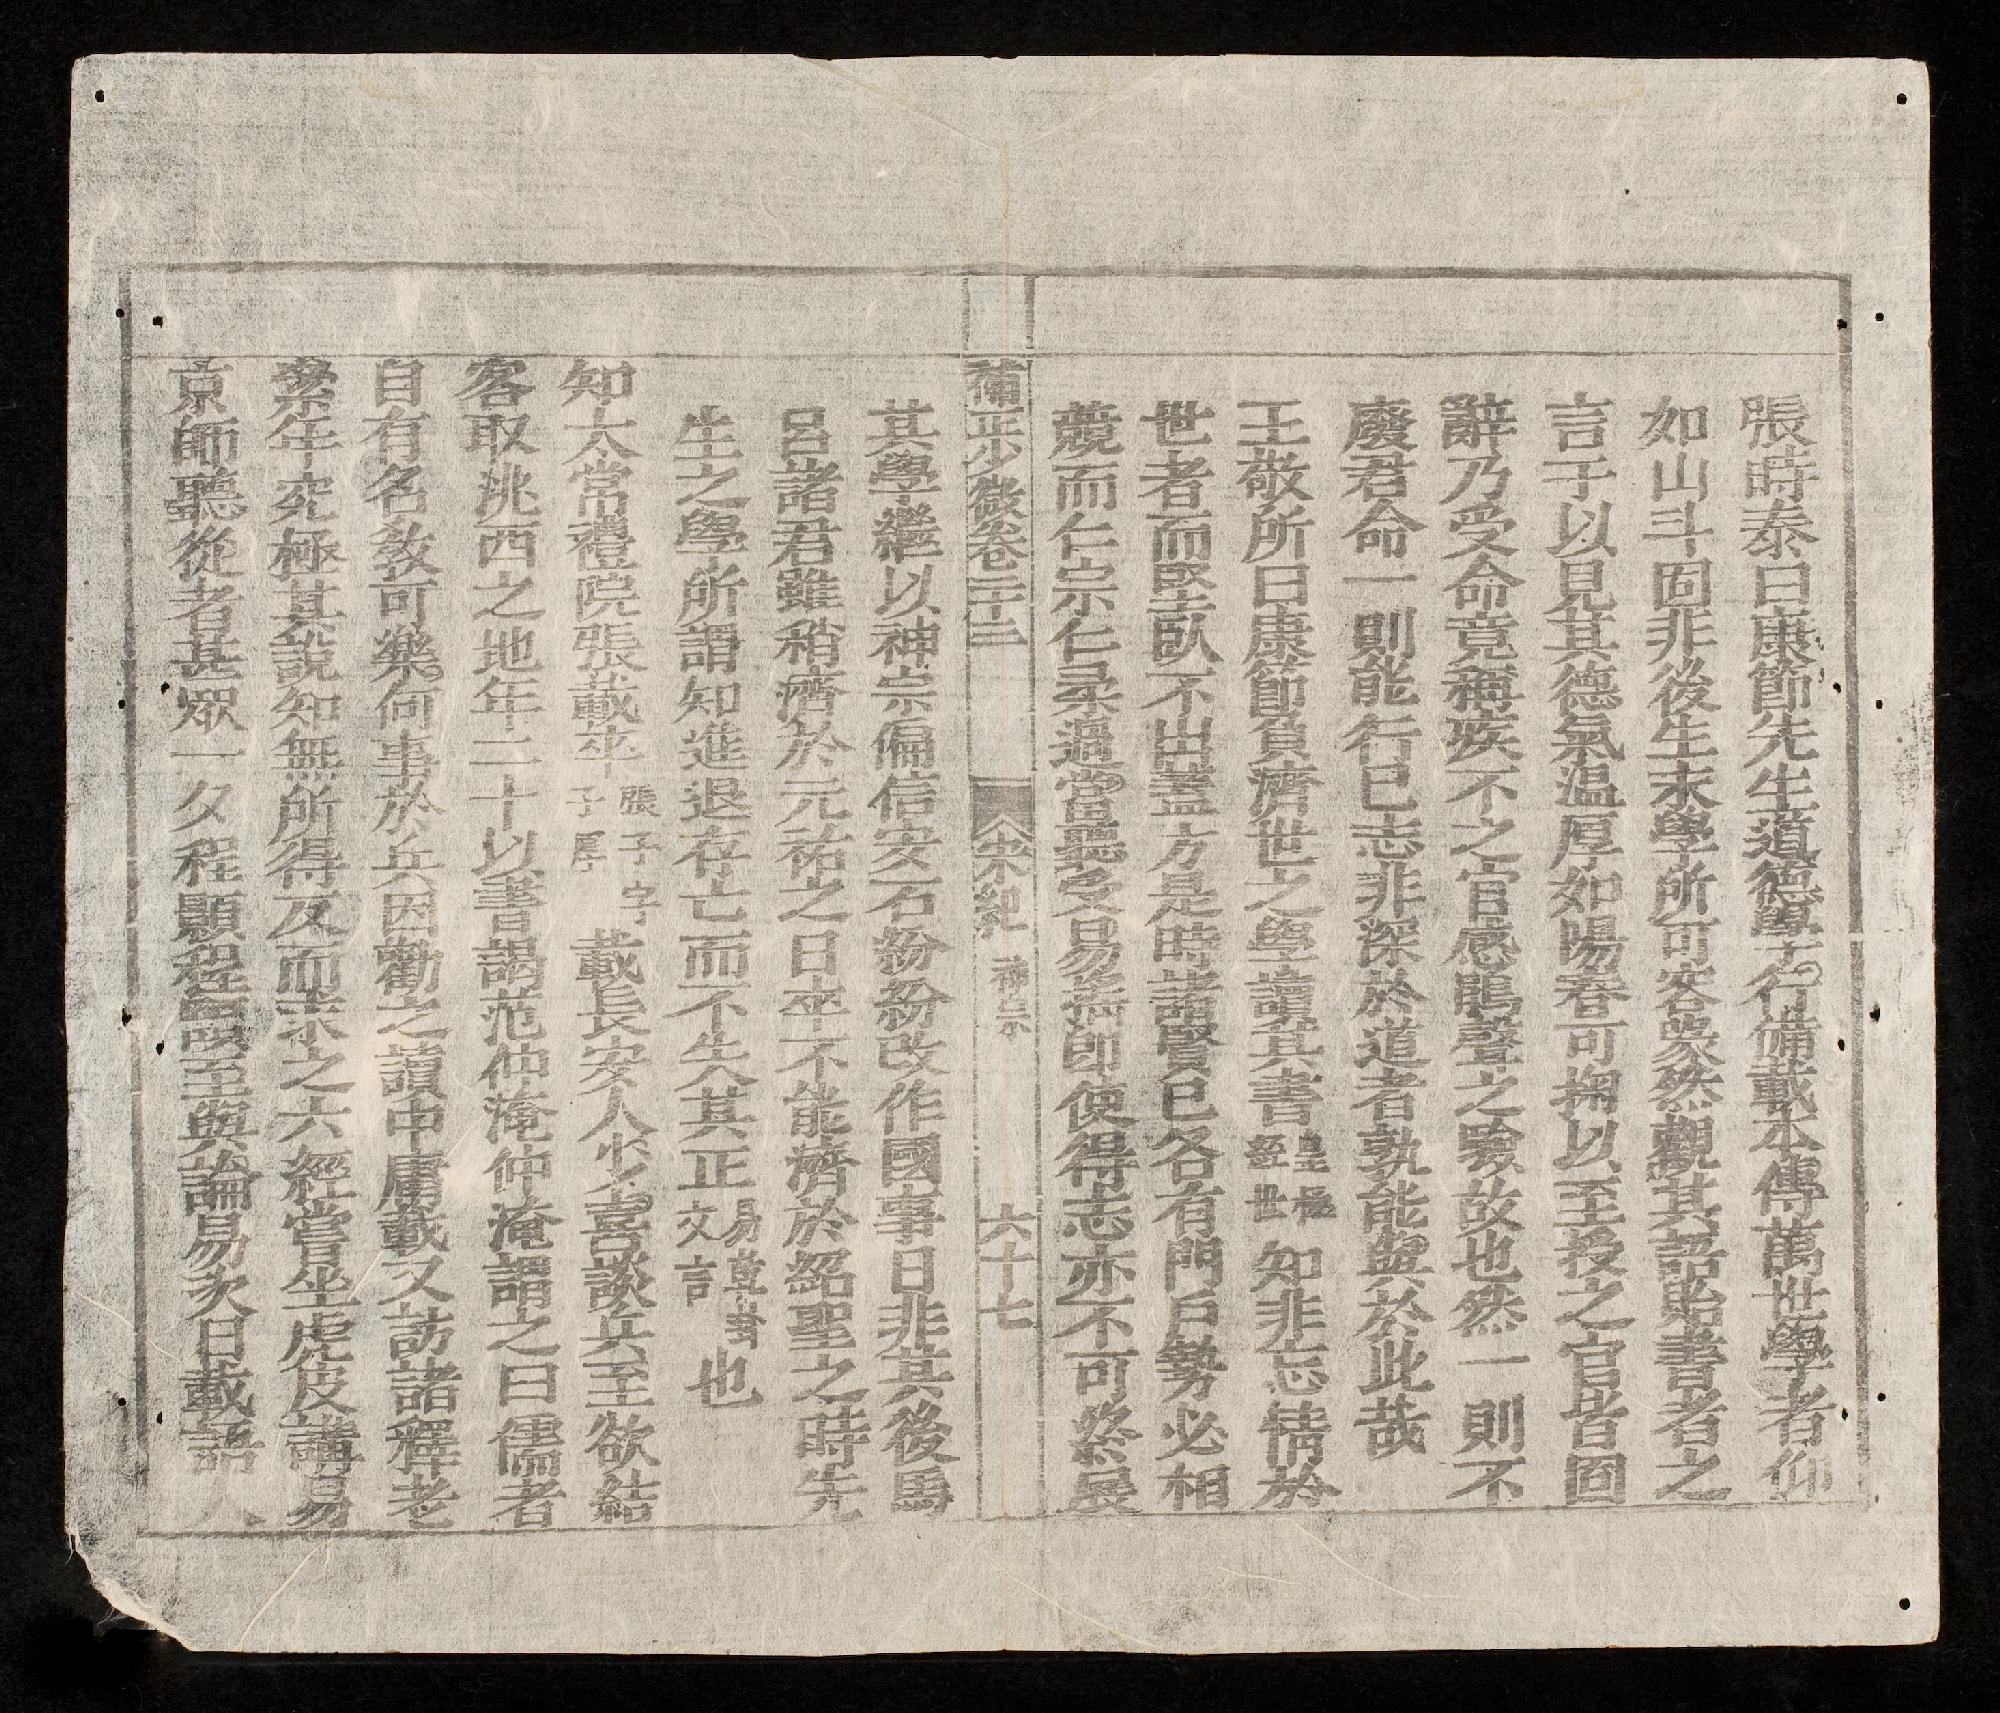 張時泰曰康節先生道德學行備載本傳萬世學者仰
如山斗固非後生末學所可容喙然觀其語貽書者之
言于以見其德氣温厚如陽春可掬以至授之官皆固
辭乃受命竟稱疾不之官感鵑聲之驗故也然一則不
廢君命一則能行已志非深於道者孰能與於此哉
王敬所曰康節負濟世之學讀其書皇極經世知非忘情於
世者而堅臥不出蓋方是時諸賢已各有門戶勢必相
競而仁宗仁柔過當聽受易搖卽使得志亦不可終展
補正少微卷二十二 宋紀 神宗 六十七
其學繼以神宗偏信安石紛紛改作國事日非其後馬
呂諸君雖稍濟於元祐之日卒不能濟於紹聖之時先
生之學所謂知進退存亡而不失其正易乾卦文言也
知太常禮院張載卒張子字子厚載長安人少喜談兵至欲結
客取洮西之地年二十以書謁范仲淹仲淹謂之曰儒者
自有名敎可樂何事於兵因勸之讀中庸載又訪諸釋老
累年究極其說知無所得反而求之六經嘗坐虎皮講易
京師聽從者甚眾一夕程顥程頤至與論易次日載語人